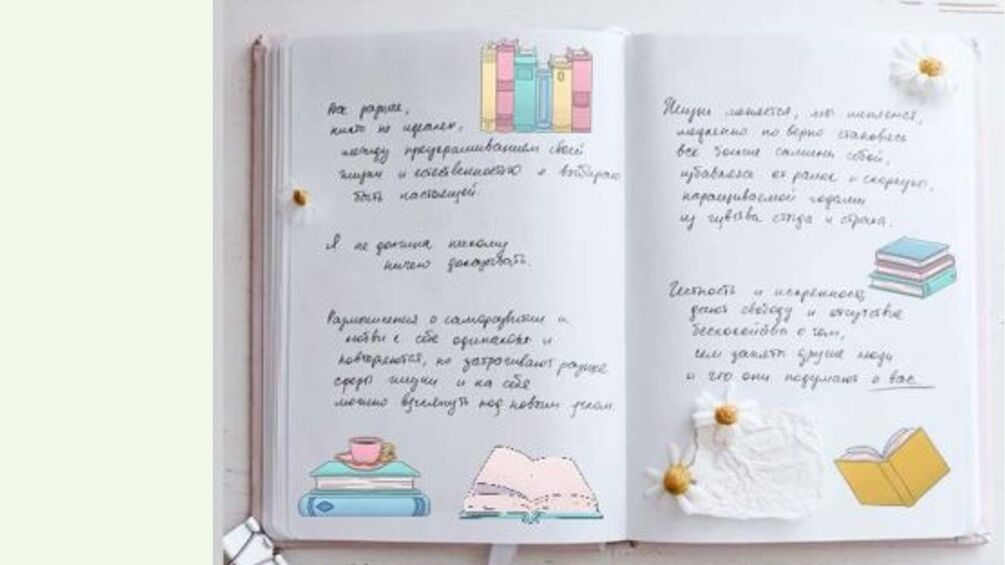 Все разные,
никто не идеален,
между приукрашиванием своей
жизни и естественностью я выбираю
быть настоящей.
Я не должна никому
ничего доказывать.
Размышления о саморазвитии и
любви к себе одинаковы и
повторяются, но затрагивают разные
сферы жизни и на себя
можно взглянуть под новым углом.
Жизнь меняется, мы меняемся,
медленно но верно становясь
все больше самими собой,
избавляясь от рамок и скорлупы,
наращиваемой годами
из чувства стыда и страха.
Честность и искренность
дают свободу и отсутствие
беспокойства о том,
чем заняты другие люди
и что они подумают о вас